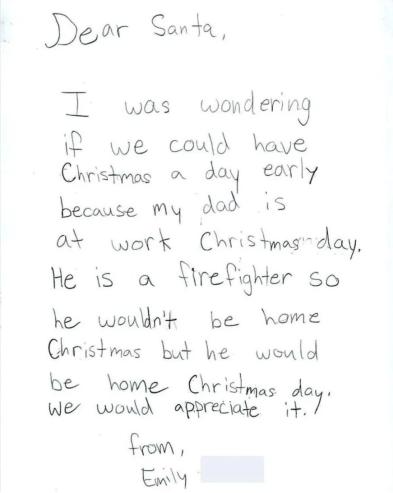 Dear Santa,
I was wondering
if we could have
Christmas a day early
because my dad is
at work Christmas day.
He is a firefighter so
he wouldn't be home
Christmas but he would
be home Christmas day.
we would appreciate it.
from,
Emily